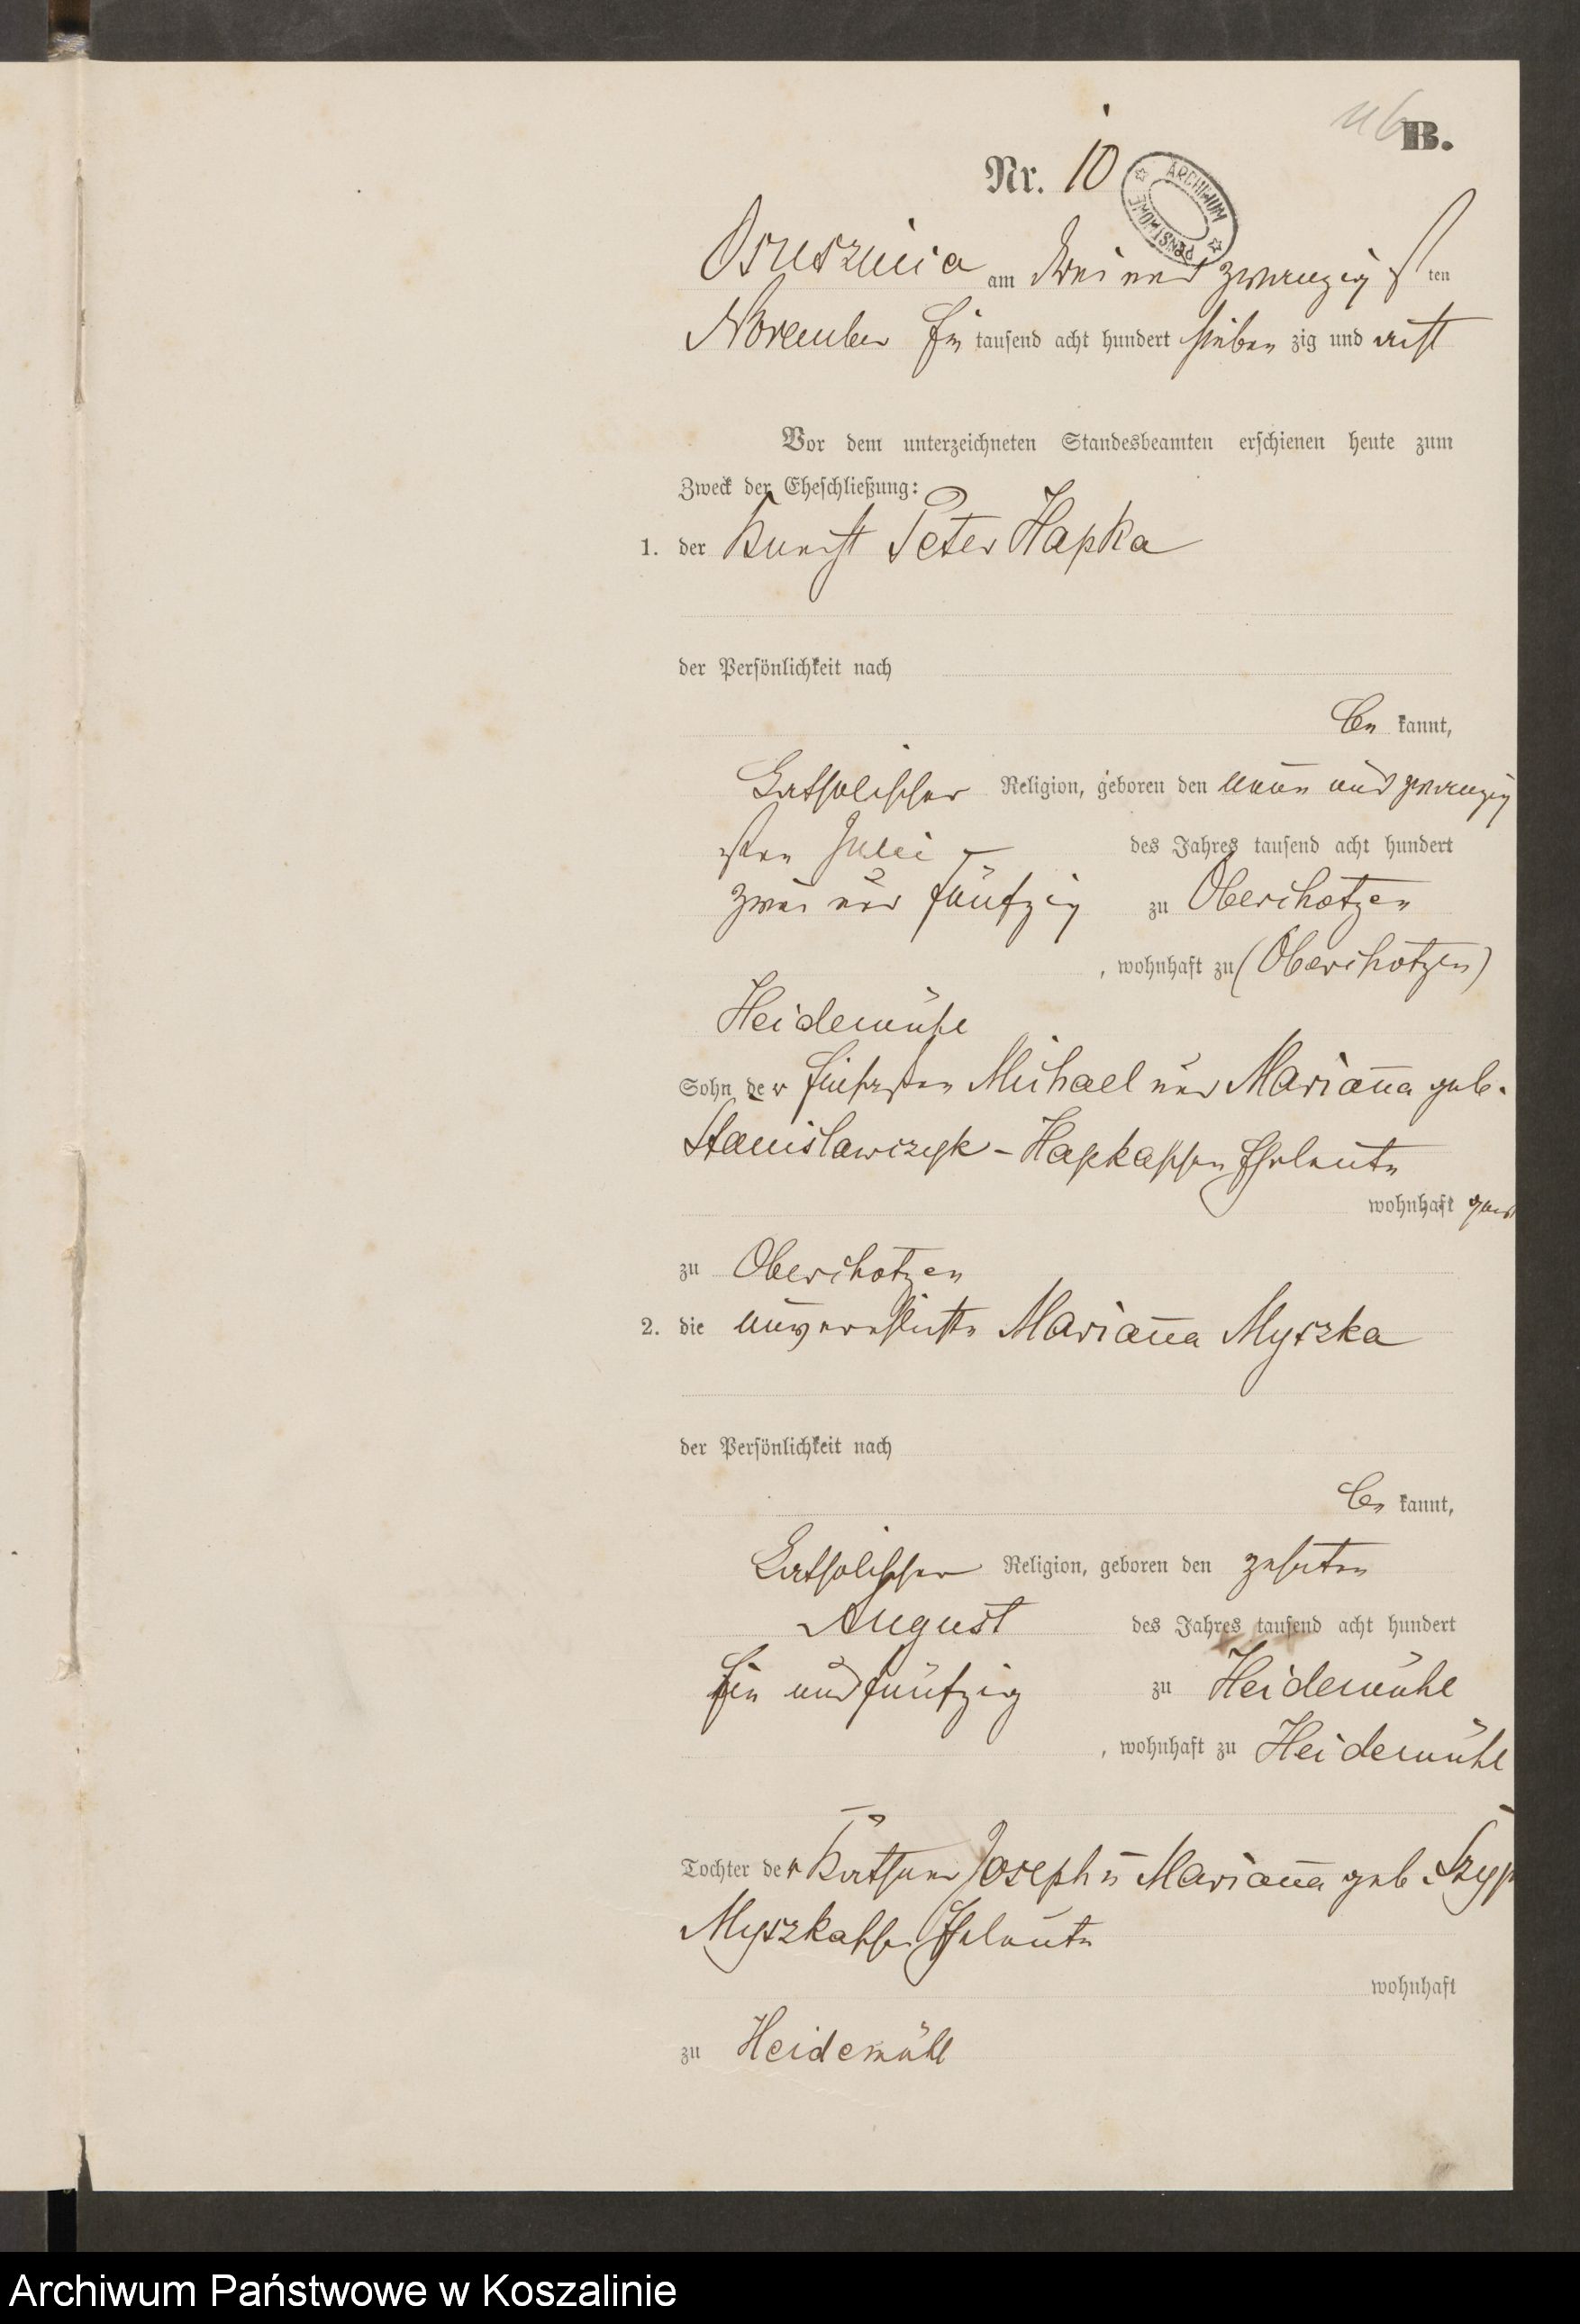 116 B.
Nr. 10
ARCHIWUM PAŃSTWOWE
Osusznica am drei und zwanzig sten
November Ein tausend acht hundert sieben zig und acht
Vor dem unterzeichneten Standesbeamten erschienen heute zum
Zweck der Eheschließung:
1. der Knecht Peter Hapka
der Persönlichkeit nach
be kannt,
katholischer Religion, geboren den neun und zwanzig
sten Juli des Jahres tausend acht hundert
zwei und fünfzig zu Oberschotzen
, wohnhaft zu (Oberschotzen)
Heidemühl
Sohn der Michael und Marianna geb.
Stanislawczyk - Hapkaschen Eheleute
wohnhaft
zu Oberschotzen
2. die unverehelichte Marianna Myszka
der Persönlichkeit nach
be kannt,
katholischer Religion, geboren den zehnten
August des Jahres tausend acht hundert
ein und fünfzig zu Heidemühl
, wohnhaft zu Heidemühl
Tochter der Käthner Joseph u Marianna geb
Myszkaschen Eheleute
wohnhaft
zu Heidemühl
Archiwum Państwowe w Koszalinie